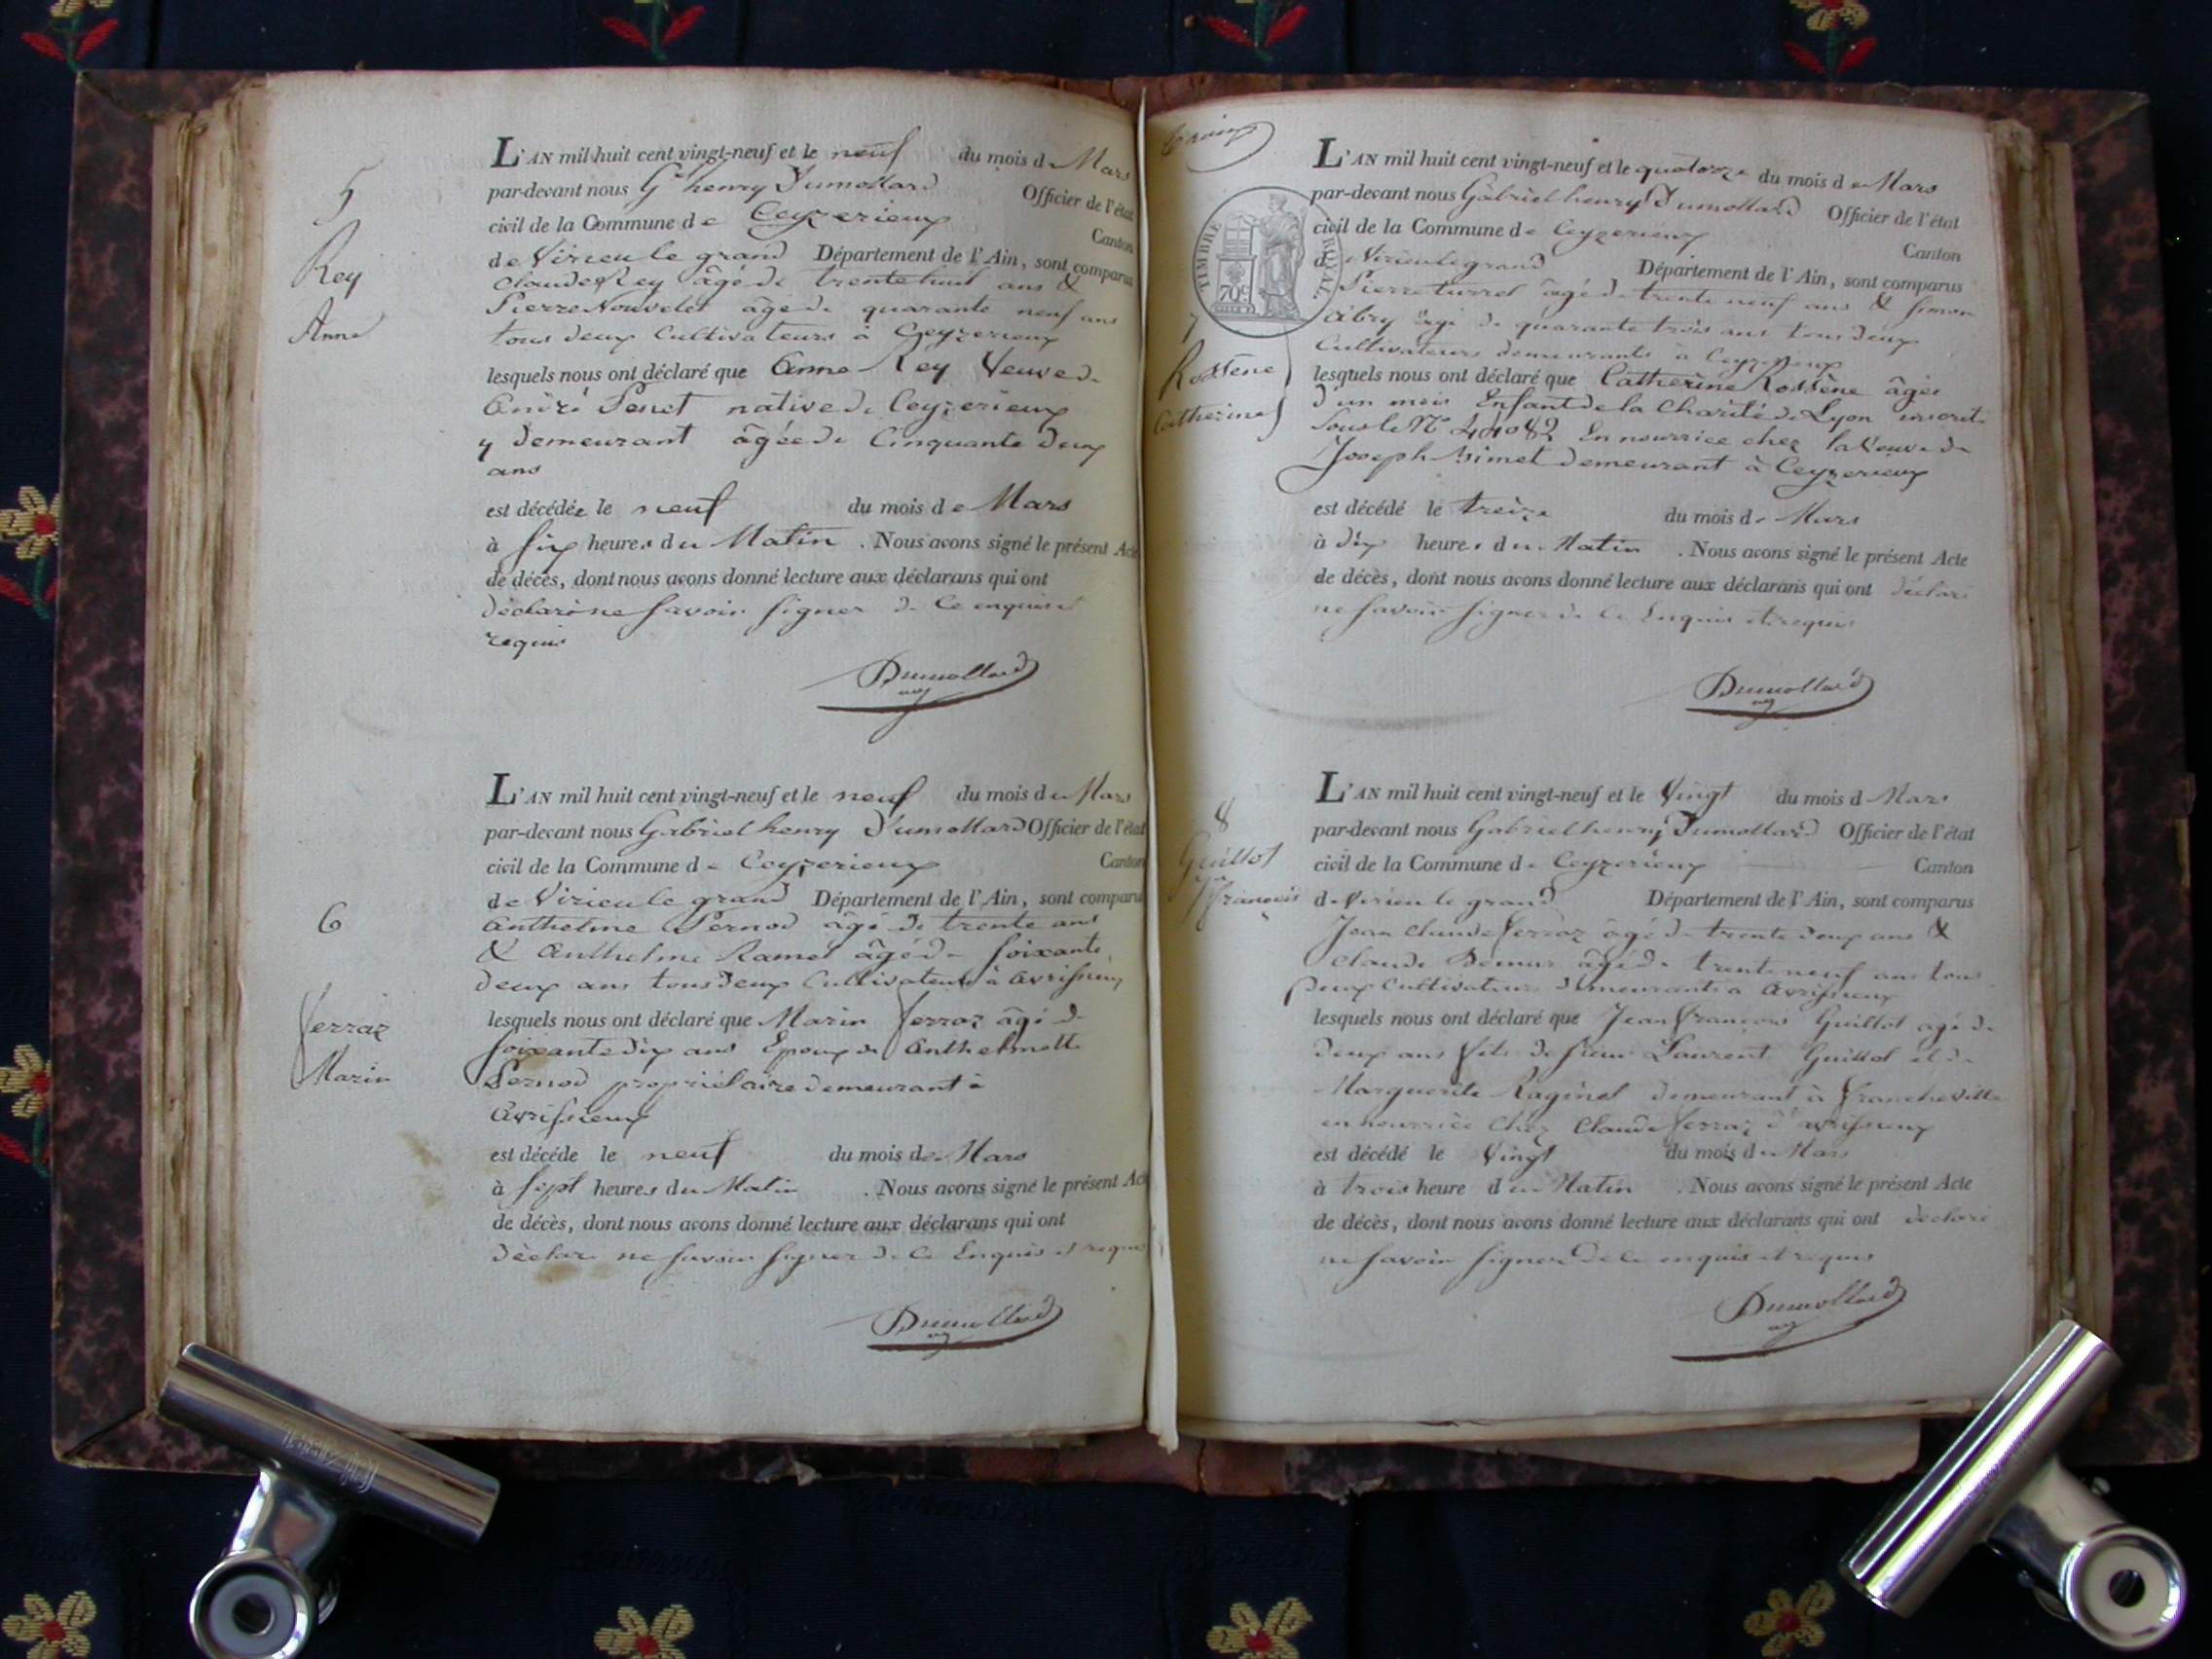 5
Rey
Anne
L'AN mil huit cent vingt-neuf et le neuf du mois de Mars
par-devant nous Gel henry Dumollard Officier de l'état
civil de la Commune de Ceyzerieux Canton
de Virieu le grand Département de l'Ain, sont comparus
Claude Rey âgé de trente huit ans &
Pierre Nouvelet âgé de quarante neuf ans
tous deux Cultivateurs à Ceyzerieux
lesquels nous ont déclaré que Anne Rey Veuve de
André Penet native de Ceyzerieux
y demeurant âgée de Cinquante Deux
ans
est décédée le neuf du mois de Mars
à six heures du Matin . Nous avons signé le présent Acte
de décès, dont nous avons donné lecture aux déclarans qui ont
déclaré ne savoir signer de ce enquis et
requis
Dumollard
6
Ferraz
Marin
L'AN mil huit cent vingt-neuf et le neuf du mois de Mars
par-devant nous Gabriel henry Dumollard Officier de l'état
civil de la Commune de Ceyzerieux Canton
de Virieu le grand Département de l'Ain, sont comparus
Anthelme Pernod âgé de trente ans
& Anthelme Ramel âgé de soixante
deux ans tous deux Cultivateurs à Avrissieux
lesquels nous ont déclaré que Marin Ferraz âgé de
soixante dix ans Epoux de Anthelmette
Pernod propriétaire demeurant à
Avrissieux
est décédé le neuf du mois de Mars
à sept heures du Matin . Nous avons signé le présent Acte
de décès, dont nous avons donné lecture aux déclarans qui ont
déclaré ne savoir signer de ce Enquis et requis
Dumollard
TIMBRE ROYAL
70c
7
Rossène
Catherine
L'AN mil huit cent vingt-neuf et le quatorze du mois de Mars
par-devant nous Gabriel henry Dumollard Officier de l'état
civil de la Commune de Ceyzerieux Canton
de Virieu le grand Département de l'Ain, sont comparus
Pierre turrel âgé de trente neuf ans & Simon
Abry âgé de quarante trois ans tous deux
Cultivateurs demeurants à Ceyzerieux
lesquels nous ont déclaré que Catherine Rossène âgée
d'un mois Enfant de la Charité de Lyon inscrit
sous le No 44082 En nourrice chez la Veuve de
Joseph Simet demeurant à Ceyzerieux
est décédé le treize du mois de Mars
à dix heures du Matin . Nous avons signé le présent Acte
de décès, dont nous avons donné lecture aux déclarans qui ont déclaré
ne savoir signer de ce Enquis et requis
Dumollard
8
Guillot
Jn
françois
L'AN mil huit cent vingt-neuf et le Vingt du mois d Mars
par-devant nous Gabriel henry Dumollard Officier de l'état
civil de la Commune de Ceyzerieux Canton
de Virieu le grand Département de l'Ain, sont comparus
Jean Claude Ferraz âgé de trente deux ans &
Claude Demur âgé de trente neuf ans tous
Deux Cultivateurs demeurants à Avrissieux
lesquels nous ont déclaré que Jean François Guillot âgé de
deux ans fils de sieur Laurent Guillot et de
Marguerite Raginel demeurant à Francheville
en nourrice chez Claude Ferraz d'avrissieux
est décédé le Vingt du mois de Mars
à trois heure du Matin . Nous avons signé le présent Acte
de décès, dont nous avons donné lecture aux déclarans qui ont déclaré
ne savoir signer de ce enquis et requis
Dumollard